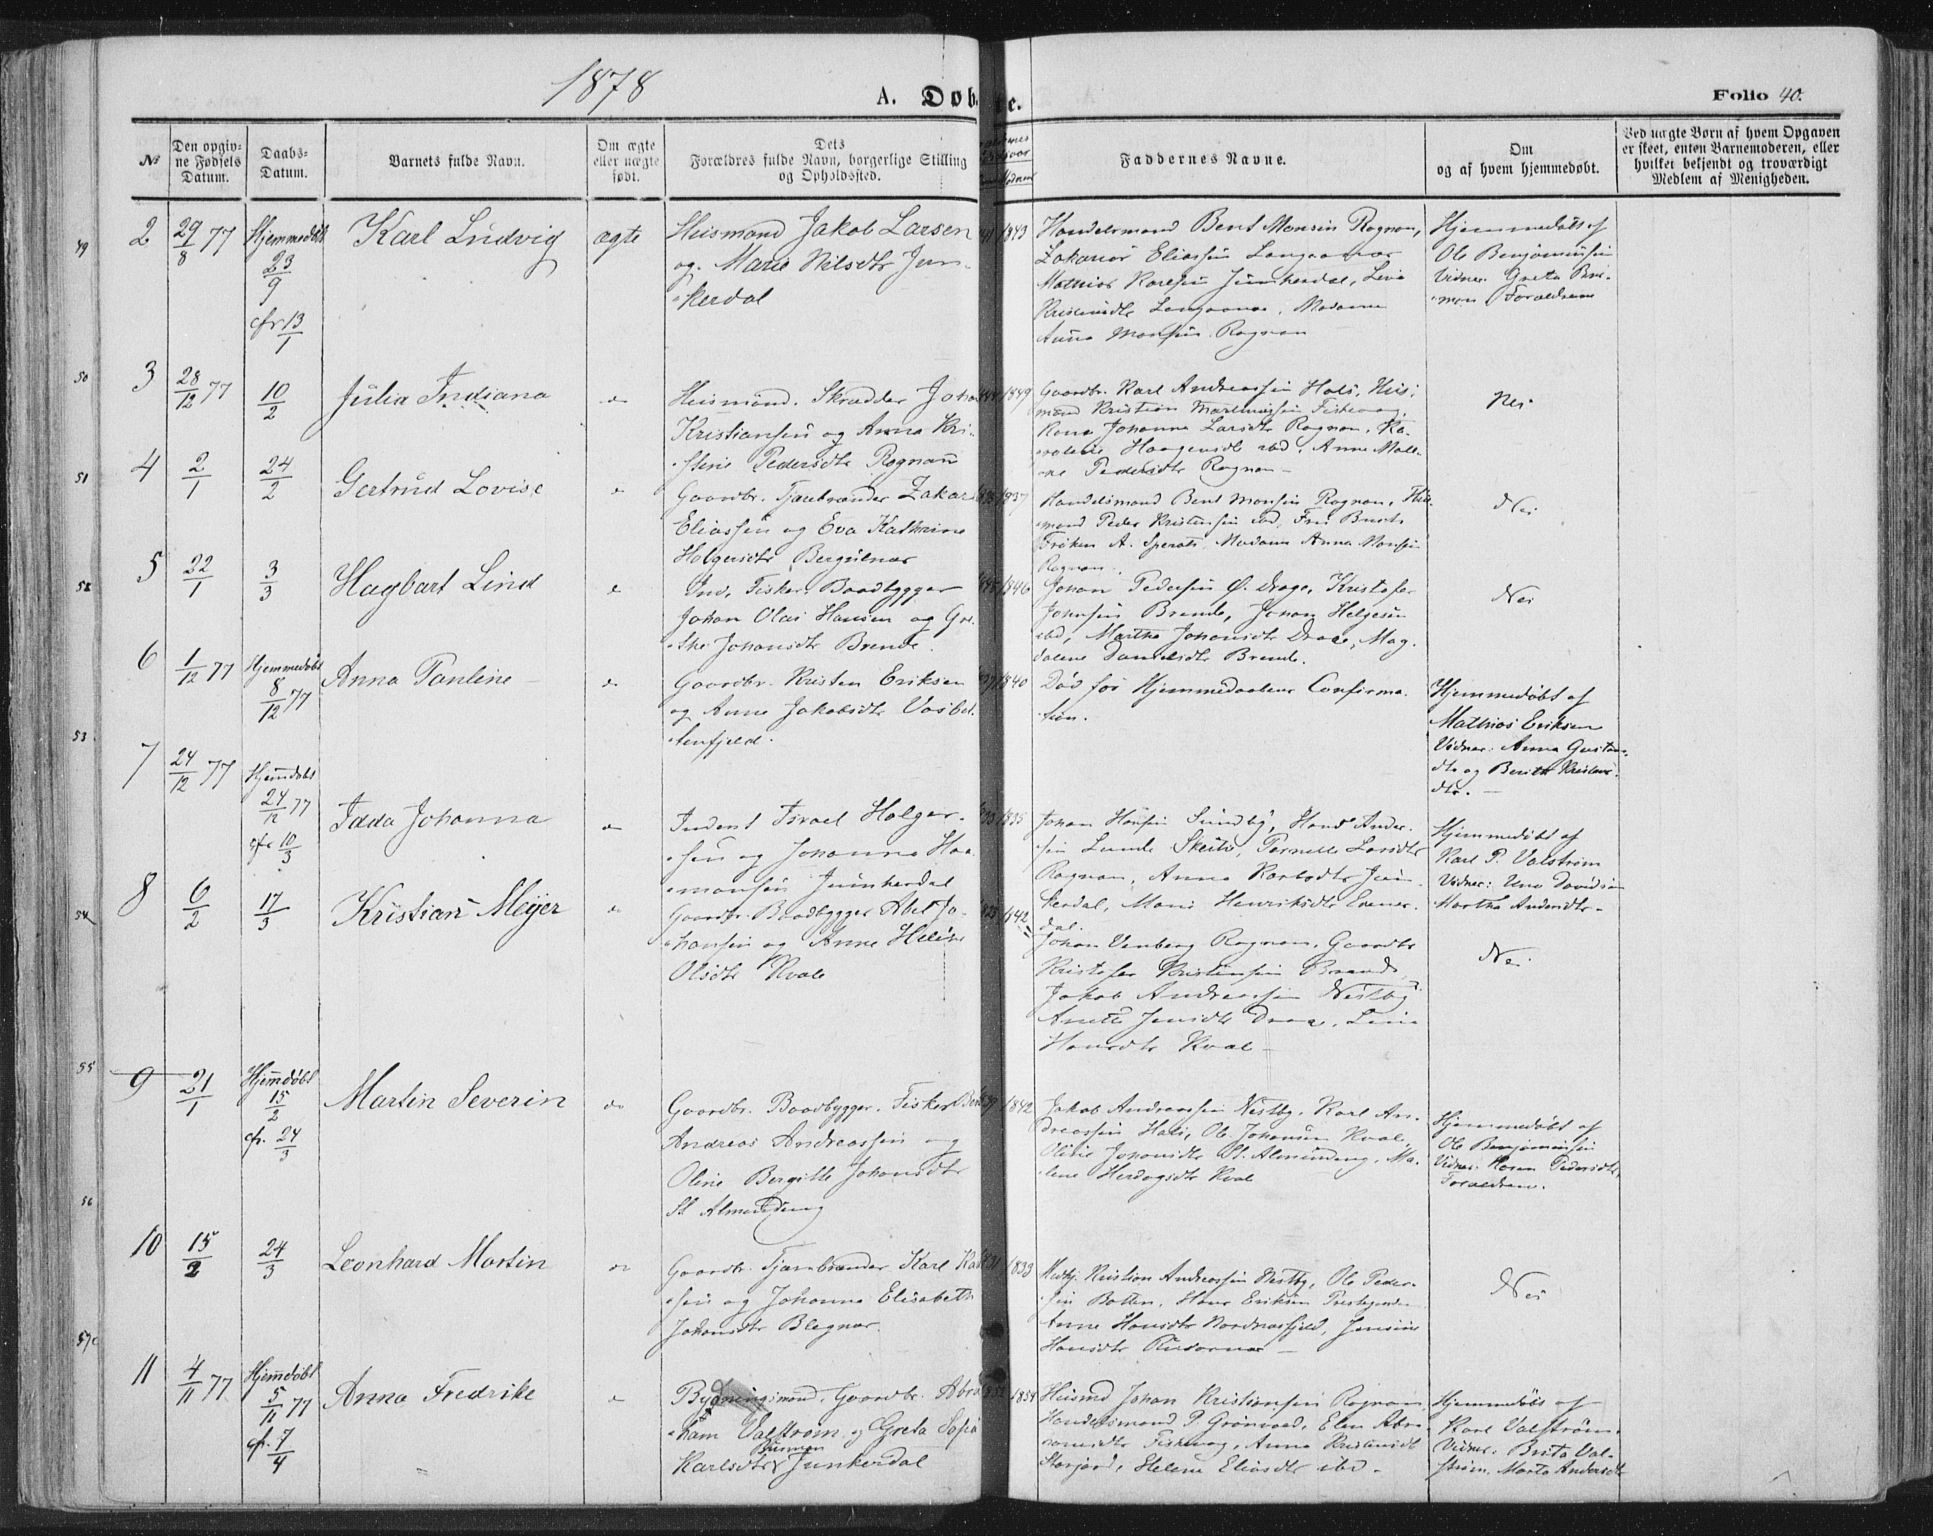 1878
A. Døbte.
Folio 40.
№
Den opgivne Fødsels Datum.
Daabs-Datum.
Barnets fulde Navn.
Om ægte eller uægte født.
Dets Forældres fulde Navn, borgerlige Stilling og Opholdssted.
Faddernes Navne.
Om og af hvem hjemmedøbt.
Ved uægte Børn af hvem Opgaven er skeet, enten Barnemoderen, eller hvilket bekjendt og troværdigt Medlem af Menigheden.
49
2
29/8 77
Hjemmedøbt
23/9
cfr 13/1
Karl Ludvig
ægte
Huismand Jakob Larsen
og Marie Nilsdtr Jun-
kerdal
1843
Handelsmand Bent Monsen Rognan,
Zakarias Eliassen Langaanes
Mathias Karlsen Junkerdal, Lena
Langaanes, Madame
Anna Monsen Rognan
Hjemmedøbt af
Ole Benjaminsen
Vidner: Greta
Forældrene
50
3
28/12 77
10/2
Julia Indiana
do
Huismand. Skrædder Johan
Kristiansen og Anna Kri-
stine Pedersdtr Rognan
1849
Gaardbr. Karl Andreassen Hals, Huis-
mand Kristian Fiskvaag,
Kone Johanna Larsdtr Rognan,
ibd, Anne
Pedersdtr Rognan
Nei
51
4
2/1
24/2
Gertrud Lovise
do
Gaardbr. Tjærebrænder Zakarias
Eliassen og Eva Kathrine
Holgersdtr Bergulnes
1837
Handelsmand Bent Monsen Rognan, Huis-
mand Peder Kristensen ibd,
Frøken A. Madame Anna Monsen
Rognan.
Nei
52
5
22/1
3/3
Hagbart Lind
do
Ind, Fisker, Baadbygger
Johan Olai Hansen og Gre-
the Johansdtr Brende
1846
Johan Pedersen Ø. Drage, Kristofer
Johnsen Brende, Johan Helgesen
ibd, Martha Johansdtr Drage, Mag-
dalene Danielsdtr Brende.
Nei
6
1/12 77
Hjemmedøbt
8/12 77
Anna Pauline
do
Gaardbr. Kristen Eriksen
og Anne Jakobsdtr Vasbot-
tenfjeld.
1840
Død før Hjemmedaabens Confirma-
tion.
Hjemmedøbt af
Mathias Eriksen
Vidner: Anna Gustavs-
dtr og Berith Kristens-
dtr.
53
7
24/12 77
Hjemdøbt
24/12 77
cfr 10/3
Idda Johanna
do
Inderst Israel Holger-
sen og Johanna Haa-
monsen Junkerdal
1835
Johan Hansen Sundby, Hans Ander-
sen Lunde Skeiti, Pernelle Larsdtr
Rognan, Anna Karlsdtr Jun-
kerdal, Marie Henriksdtr Evener-
dal.
Hjemmedøbt af
Karl P. Valstrøm
Vidner: Uno Davidsen
Martha Andersdtr.
54
8
6/2
17/3
Kristian Meyer
do
Gaardbr. Baadbygger Abel Jo-
hansen og Anne Helene
Olsdtr Kvale
1842
Johan Venberg Rognan, Gaardbr
Kristofer Kristensen Brende,
Jakob Andreassen Nestby
Anette Jensdtr Drage, Lina
Hansdtr Kvale
Nei.
55
9
21/1
Hjemdøbt
15/2
cfr. 24/3
Martin Severin
do
Gaardbr. Baadbygger. Fisker Bernt
Andreas Andreassen og
Oline Bergitte Johansdtr
St Almenning
1842
Jakob Andreassen Nestby. Karl An-
dreassen Hals, Ole Johansen Kvale,
Oline Johansdtr St. Almenning, Ma-
lene Herdagsdtr Kvale
Hjemmedøbt af
Ole Benjaminsen
Vidner: Maren Pedersdtr,
Forældrene.
56
10
15/2
24/3
Leonhard Martin
do
Gaardbr. Tjærebrænder Karl
sen og Johanna Elisabeth
Johansdtr Blegnes.
1833
Kristian Andreassen Nestby, Ole Peder-
sen Botten, Hans Eriksen
Anne Hansdtr Nordnesfjeld, Jensine
Hansdtr
Nei
57
11
4/11 77
Hjemdøbt
5/11 77
cfr. 7/4
Anna Fredrike
do
Bygningsmand, Gaardbr. Abra-
ham Valstrøm og Greta Sofia
Karlsdtr Burman Junkerdal
1854
Huismd Johan Kristiansen Rognan
Handelsmand P. Grønvaad, Elen Abra-
hamsdtr Fiskvaag, Anna Kristensdt
Storjord, Helene Eliasdtr ibd.
Hjemmedøbt af
Karl Valstrøm.
Vidner: Brita Val-
strøm, Marta Andersdtr